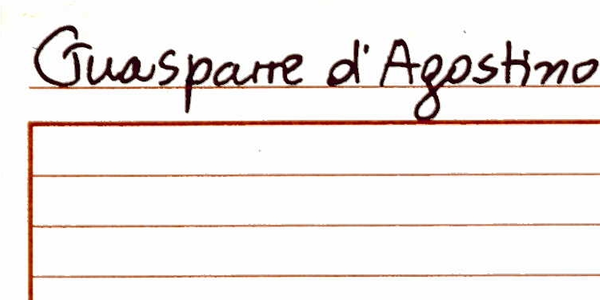 Guasparre d'Agostino